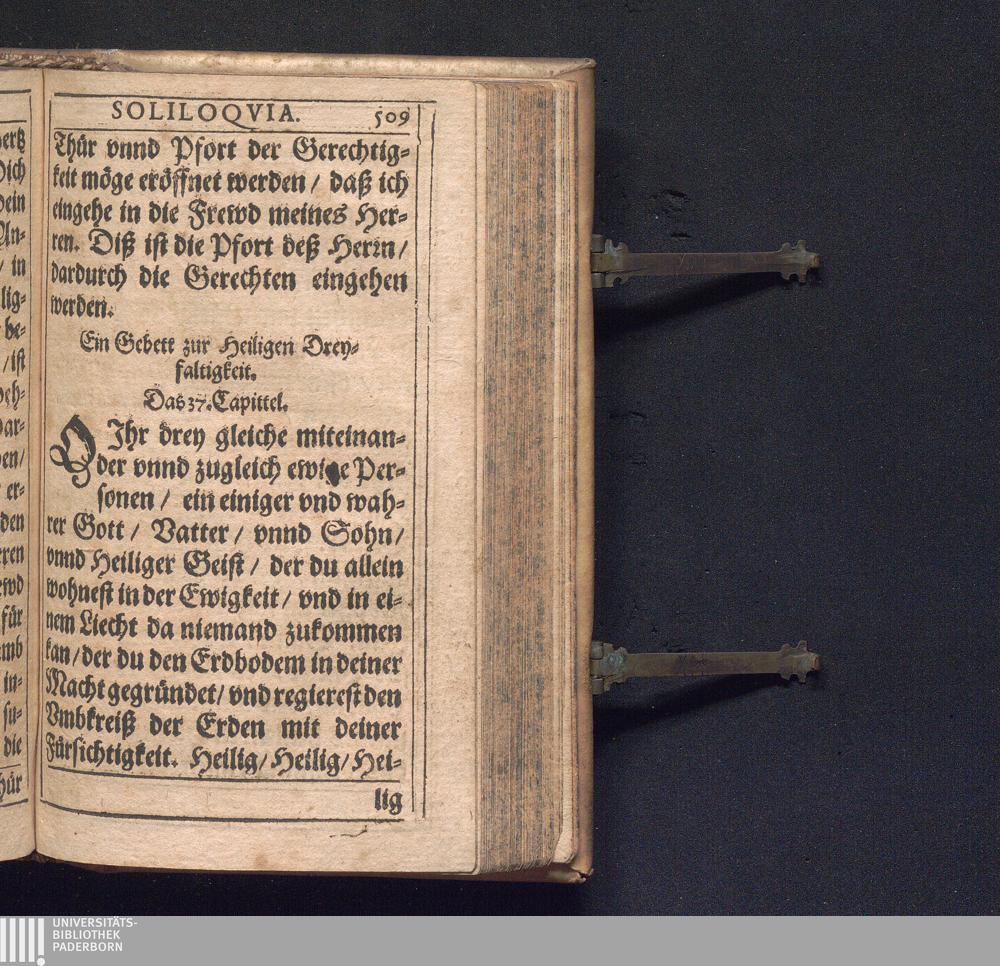 SOLILOQVIA. 509
Thür vnnd Pfort der Gerechtig-
keit möge eröffnet werden / daß ich
eingehe in die Frewd meines Her-
ren. Diß ist die Pfort deß Herrn /
dardurch die Gerechten eingehen
werden.
Ein Gebett zur Heiligen Drey-
faltigkeit.
Das 37. Capittel.
O Ihr drey gleiche miteinan-
der vnnd zugleich ewige Per-
sonen / ein einiger vnd wah-
rer Gott / Vatter / vnnd Sohn /
vnnd Heiliger Geist / der du allein
wohnest in der Ewigkeit / vnd in ei-
nem Liecht da niemand zukommen
kan / der du den Erdbodem in deiner
Macht gegründet / vnd regierest den
Vmbkreiß der Erden mit deiner
Fürsichtigkeit. Heilig / Heilig / Hei-
lig
UNIVERSITÄTS-
BIBLIOTHEK
PADERBORN